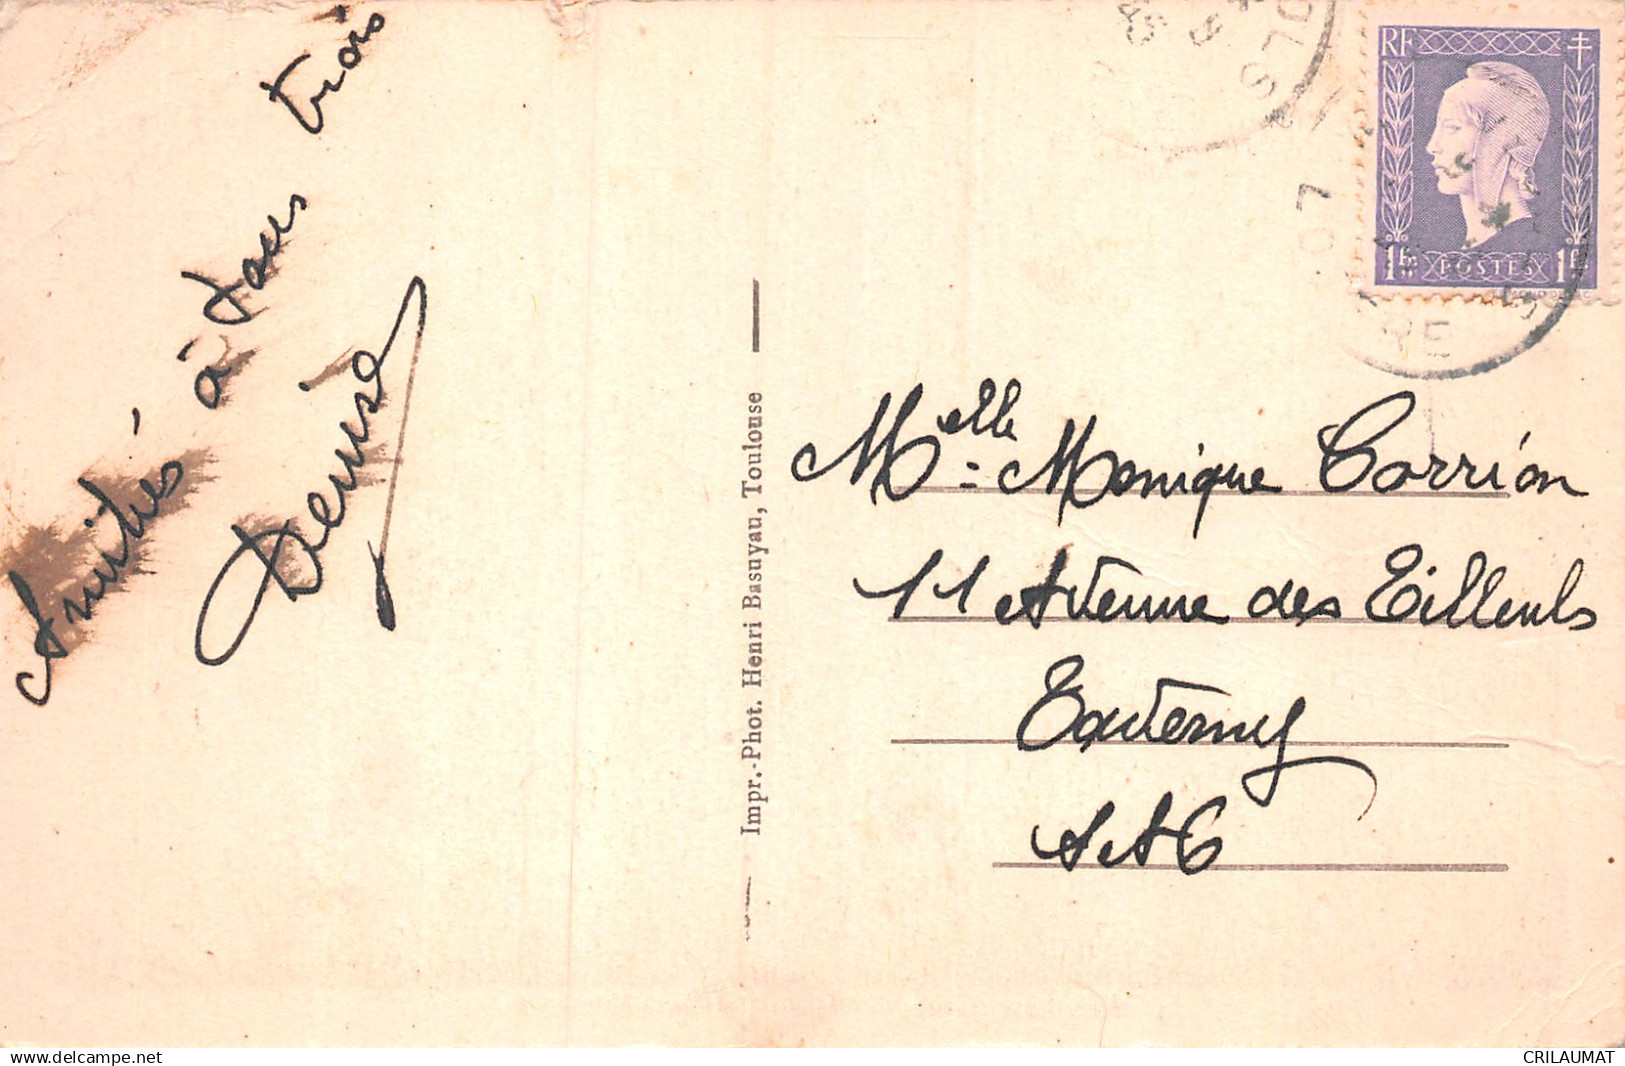 Amitiés à tous trois
Denise
Impr.-Phot. Henri Basuyau, Toulouse
RF
1F POSTES 1F
07
Melle Monique Corrion
11 Avenue des Tilleuls
Taverny
S et O
delcampe.net
CRILAUMAT